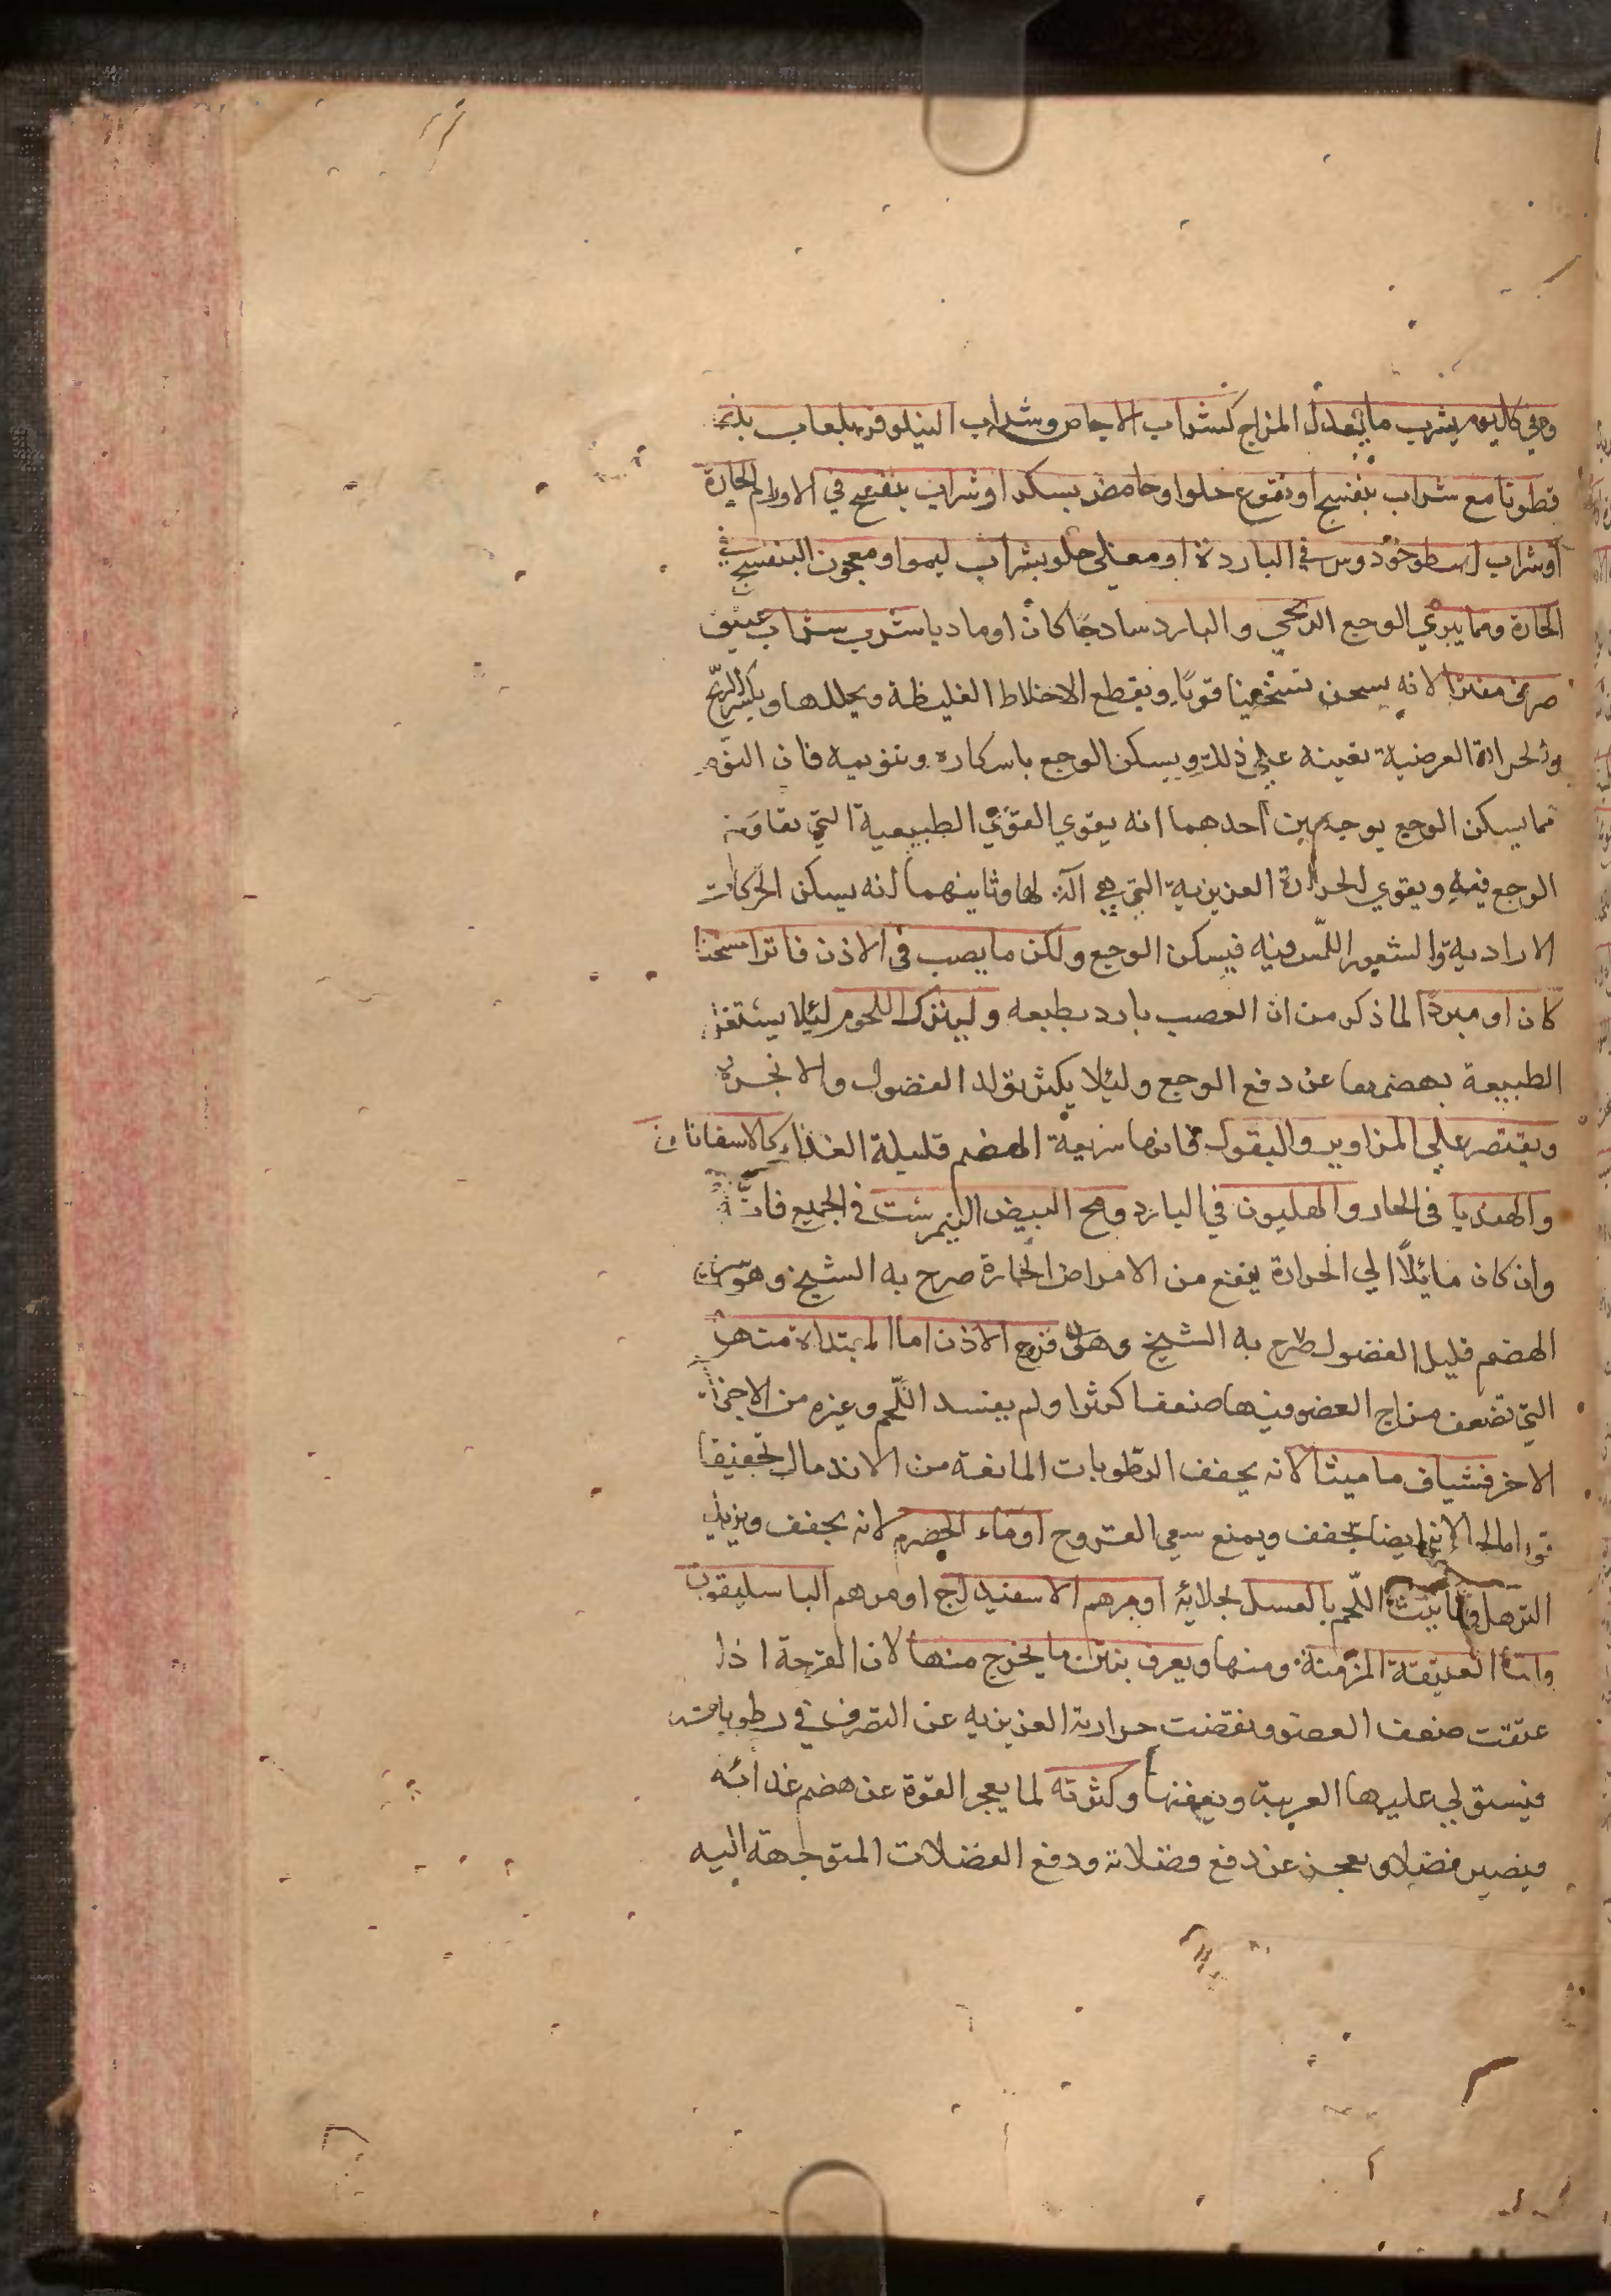 وفي كل يوم يشرب ما يعدل المزاج كشراب الاجاص وشراب النيلوفر بلعاب بذر
قطونا مع شراب بنفسج او نقوع حلوا وحامض بسكر او شراب بنفسج في الاورام الحارة
او شراب اسطوخودوس في الباردة او مغلي حلو بشراب ليمو او معجون البنفسج في
الحارة ومما يبري الوجع الريحي والبارد ساذجا كان او ماديا شرب شراب عتيق
صرف مفترا لانه يسخن تسخينا قويا ويقطع الاخلاط الغليظة ويحللها ويكسر الريح
والحرارة العرضية تعينه علي ذلك ويسكن الوجع باسكاره وتنويمه فان النوم
مما يسكن الوجع بوجهين احدهما انه يقوي القوي الطبيعية التي تقاوم
الوجع فيه ويقوي الحرارة الغريزية التي هي آلة لها وثانيهما انه يسكن الحركات
الارادية والشعور اللمس فيه فيسكن الوجع ولكن ما يصب في الاذن فاترا مسخنا
كان او مبردا لما ذكر من ان العصب بارد بطبعه وليترك اللحوم ليلا يشتغل
الطبيعة بهضمها عن دفع الوجع وليلا يكثر تولد الفضول والابخرة
ويقتصر علي المزاوير والبقول فانها سريعة الهضم قليلة الغذاء كالاسفاناخ
والهندبا في الحار والهليون في البارد ومح البيض النيمرشت في الجميع فانه
وان كان مائلا الي الحرارة ينفع من الامراض الحارة صرح به الشيخ وهو سريع
الهضم قليل الفضول صرح به الشيخ قروح الاذن اما المبتداة منها
التي تضعف مزاج العضو فيها ضعفا كثيرا ولم يفسد اللحم وغيره من الاجزاء
الاخر فشياف ماميثا لانه يجفف الرطوبات المانعة من الاندمال تجفيفا
ايضا تجفف ويمنع سعي القروح او ماء الحصرم لانه يجفف ويزيل
الترهل اللحم بالعسل لجلائه او مرهم الاسفيداج او مرهم الباسليقون
واما العتيقة المزمنة منها ويعرف بنتن ما يخرج منها لان القرحة اذا
عتقت ضعف العضو ونقصت حرارته الغريزيه عن التصرف في رطوباته
فيستولي عليها الغريبة ويعفنها وكثرته لما يعجز القوة عن هضم غدائه
فيصير فضلا ويعجز عن دفع فضلاته ودفع الفضلات المتوجهة اليه